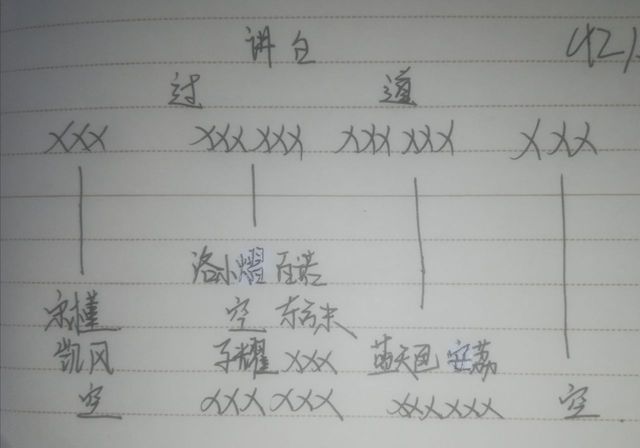 讲台 (421)
过 道
XXX XXX XXX XXX XXX XXX
洛小熠 百诺
空 东方末
凯风 子耀 XXX 蓝天画 安荔
空 XXX XXX XXX XXX 空